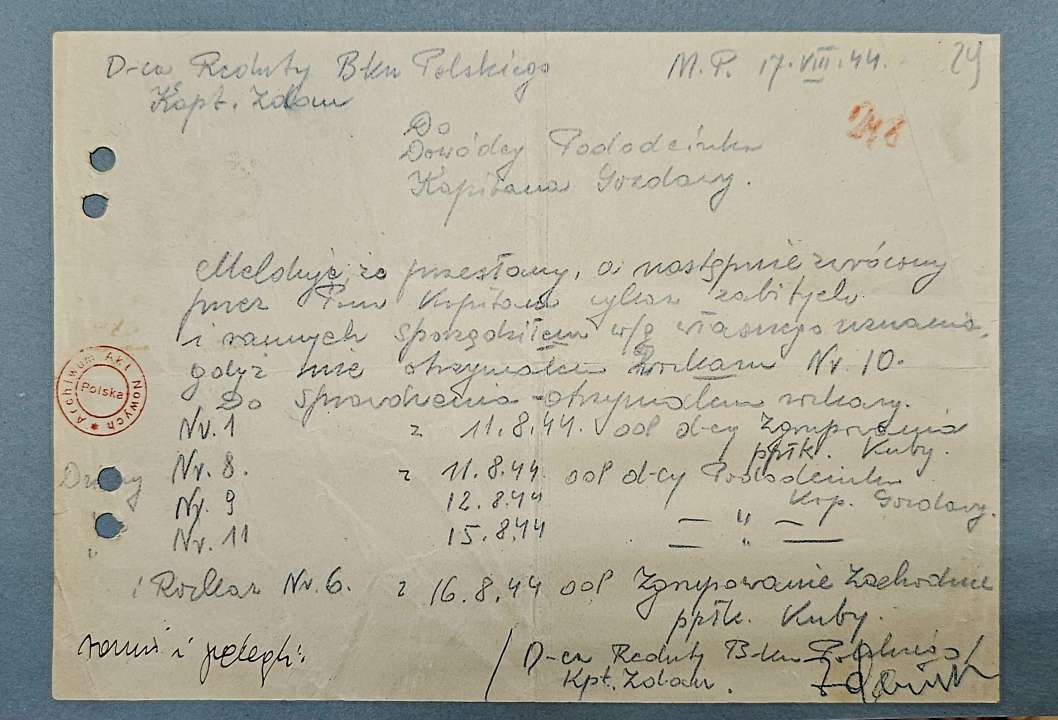 D-ca Reduty B-ku Polskiego M.P. 17.VIII.44. 29
Kapt. Zdan
Do
Dowódcy Pododcinku
Kapitana Gozdawy.
Melduję, że przesłany, a następnie zwrócony
przez Pana Kapitana wykaz zabitych
i rannych sporządziłem w/g własnego uznania,
gdyż nie otrzymałem Rozkazu Nr. 10.
Do sprawdzenia otrzymałem rozkazy.
Nr. 1 z 11.8.44. od d-cy Zgrupowania
ppłk. Kuby.
Nr. 8. z 11.8.44 od d-cy Pododcinku
Nr. 9 12.8.44 Kap. Gozdawy.
Nr. 11 15.8.44 — " —
" — " —
i Rozkaz Nr. 6. z 16.8.44 od Zgrupowanie Zachodnie
ppłk. Kuby.
ranni i polegli: / D-ca Reduty B-ku Polskiego /
Kpt. Zdan.
Archiwum Akt Nowych * Polska